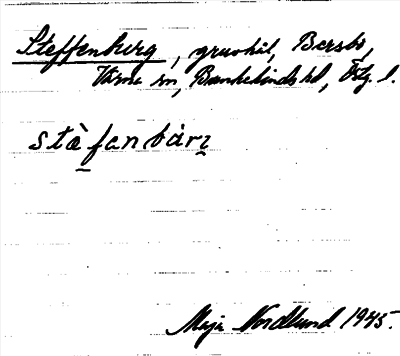 Steffenberg, gruvhål, Bersbo,
Värna sn, Bankekinds hd, Östg. l.
stὰfanbárꝫ
Maja Nordlund 1945.